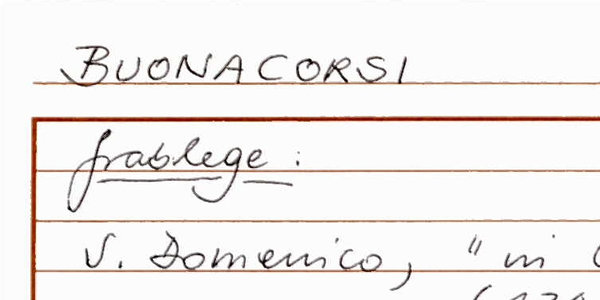 BUONACORSI
Grablege :
S. Domenico, "in